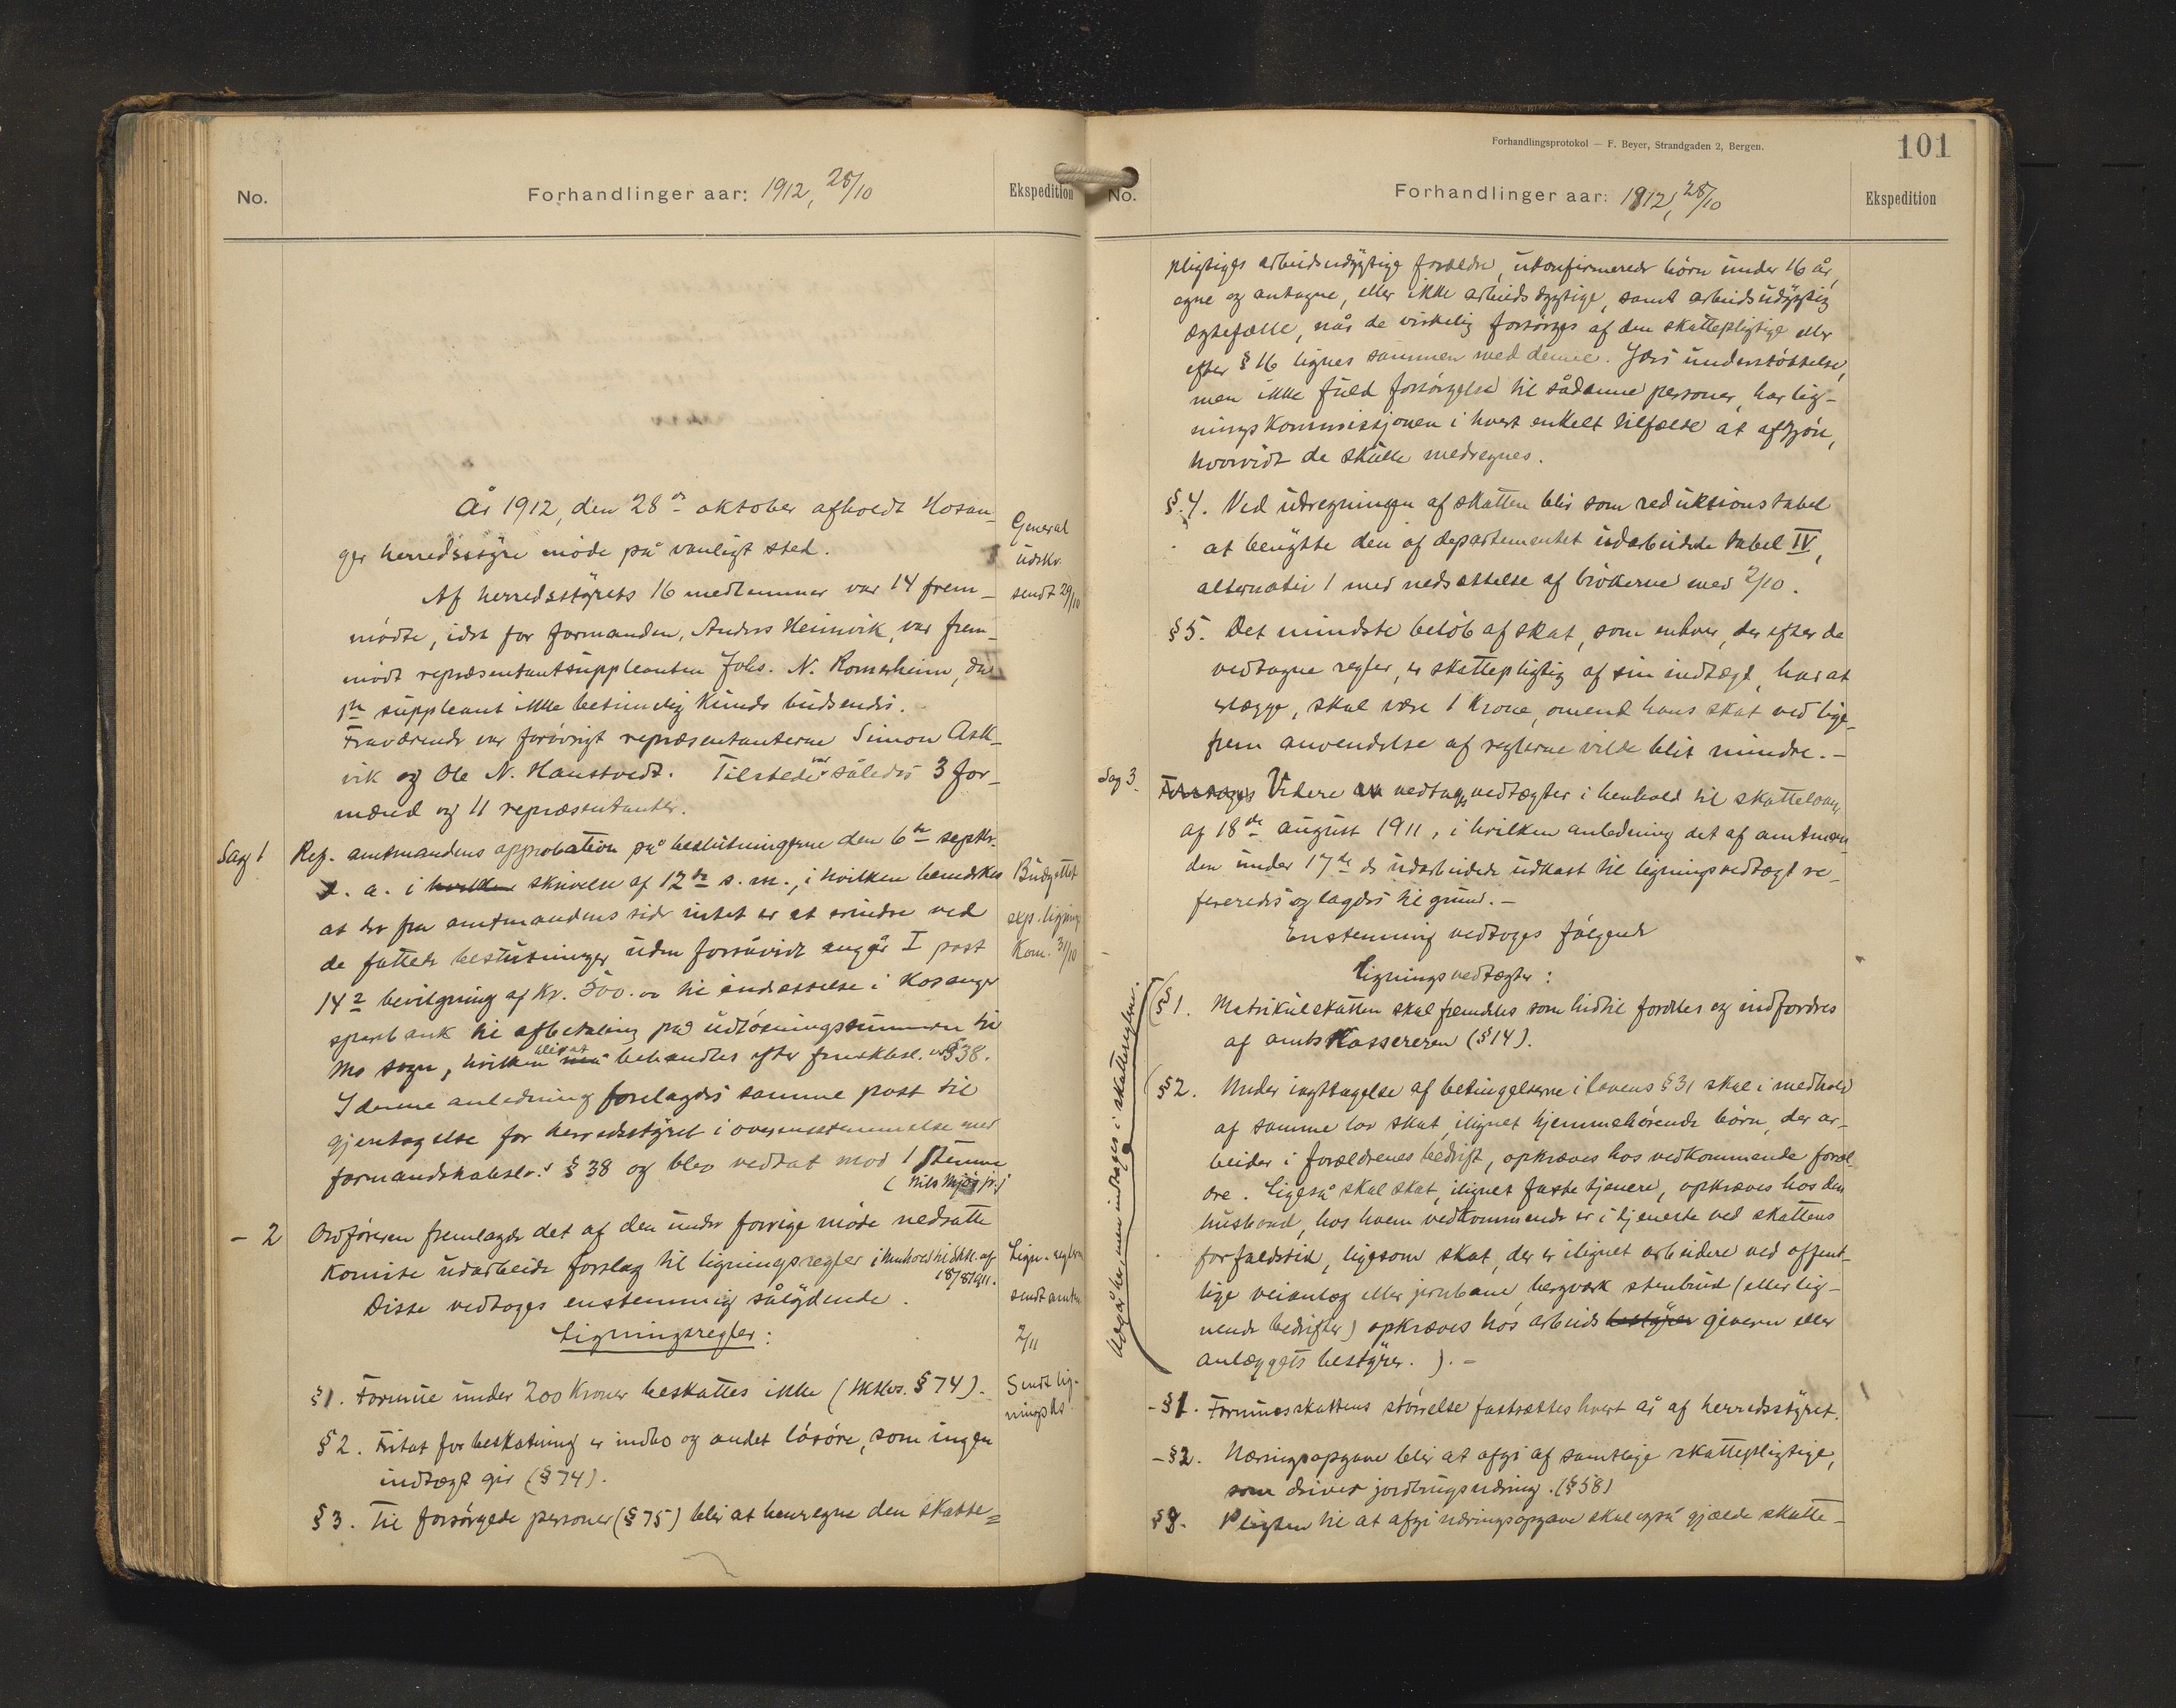 No.
Forhandlinger aar: 1912, 28/10
Ekspedition
År 1912, den 28de oktober afholdt Hosan-
ger herredsstyre møde på vanligt sted.
Af herredsstyrets 16 medlemmer var 14 frem-
mødte, idet for formanden, Anders Heimvik, var frem-
mødt repræsentantsuppleanten Johs. N. Romarheim, da
suppleant ikke betimelig kunde budsendes.
Fraværende var forøvrigt repræsentanterne Simon Ask-
vik og Ole N. Haustvedt. Tilstede var således 3 for-
mænd og 11 repræsentanter.
General
udskr.
sendt 29/10
Sag 1
Ref. amtmandens approbation på beslutningerne den 6te septbr.
d. a. i hvilken skrivelse af 12te s. m., i hvilken bemerkes
at der fra amtmandens side intet er at erindre ved
de fattede beslutninger uden forsåvidt angår I post
14 2 bevilgning af Kr. 500.00 til indsættelse i Hosanger
sparebank til afbetaling på udløsningssummen til
Mo sogn, hvilken blir at behandles efter frmskbsl. § 38.
I denne anledning forelagdes samme post til
gjentagelse for herredsstyret i overensstemmelse med
formandskabslov.s § 38 og blev vedtat mod 1 stemme
(Nils Mjøs jr.)
Budgettet
exp. lignings
Kom. 31/10
- 2
Ordføreren fremlagde det af den under forrige møde nedsatte
Komite udarbeide forslag til ligningsregler i henhold til sktl. af
18/8 1911.
Disse vedtoges enstemmig sålydende.
Ligningsregler:
Lign. reglerne
sendt amtm
2/11
§ 1. Formue under 200 Kroner beskattes ikke (sktlov. § 74).
§ 2. Fritat for beskatning er indbo og andet løsøre, som ingen
indtægt gir (§ 74).
§ 3. Til forsørgede personer (§ 75) blir at henregne den skatte-
Sendt lig-
nings
Forhandlingsprotokol — F. Beyer, Strandgaden 2, Bergen.
101
No.
Forhandlinger aar: 1912, 28/10
Ekspedition
pligtiges arbeidsudygtige forældre, ukonfirmerede børn under 16 år,
egne og antagne, eller ikke arbeidsdygtige, samt arbeidsudygtig
ægtefælle, når de virkelig forsørges af den skattepligtige eller
efter § 16 lignes sammen med denne. Ydes understøttelse,
men ikke fuld forsørgelse til sådanne personer, har lig-
ningskommissjonen i hvert enkelt tilfælde at afgjøre,
hvorvidt de skulle medregnes.
§ 4. Ved udregningen af skatten blir som reduktionstabel
at benytte den af departementet udarbeidede tabel IV,
alternativ 1 med nedsættelse af brøkerne med 2/10.
§ 5. Det mindste beløb af skat, som enhver, der efter de
vedtagne regler, er skattepligtig af sin indtægt, har at
erlægge, skal være 1 Krone, omend hans skat ved lige-
frem anvendelse af reglerne vilde blit mindre. -
Sag 3.
Videre vedtages vedtægter i henhold til skatteloven
af 18de august 1911, i hvilken anledning det af amtman-
den under 17de ds udarbeidede udkast til ligningsvedtægt re-
fereredes og lagdes til grund. -
Enstemmig vedtoges følgende
Ligningsvedtægter:
(§ 1. Matrikulskatten skal fremdeles som hidtil fordeles og indfordres
af amtskassereren (§ 14).
(§ 2. Under iagttagelse af betingelserne i lovens § 31 skal i medhold
af samme lov skat, ilignet hjemmehørende børn, der ar-
beider i forældrenes bedrift, opkræves hos vedkommende foræl-
dre. Ligeså skal skat, ilignet faste tjenere, opkræves hos den
husbond, hos hvem vedkommende er i tjeneste ved skattens
forfaldstid, ligesom skat, der er ilignet arbeidere ved offent-
lige veianlæg eller jernbane, bergværk stenbrud (eller lig-
nende bedrifter) opkræves hos arbeids bestyrer giveren eller
anlæggets bestyrer. ). -
Udgår her, men indtages i skattereglerne.
- § 1. Formuesskattens størrelse fastsættes hvert år af herredsstyret.
- § 2. Næringsopgave blir at afgi af samtlige skattepligtige,
som driver jordbrugsnæring. (§ 58)
§ 3. Pligten til at afgi næringsopgave skal også gjælde skatte-